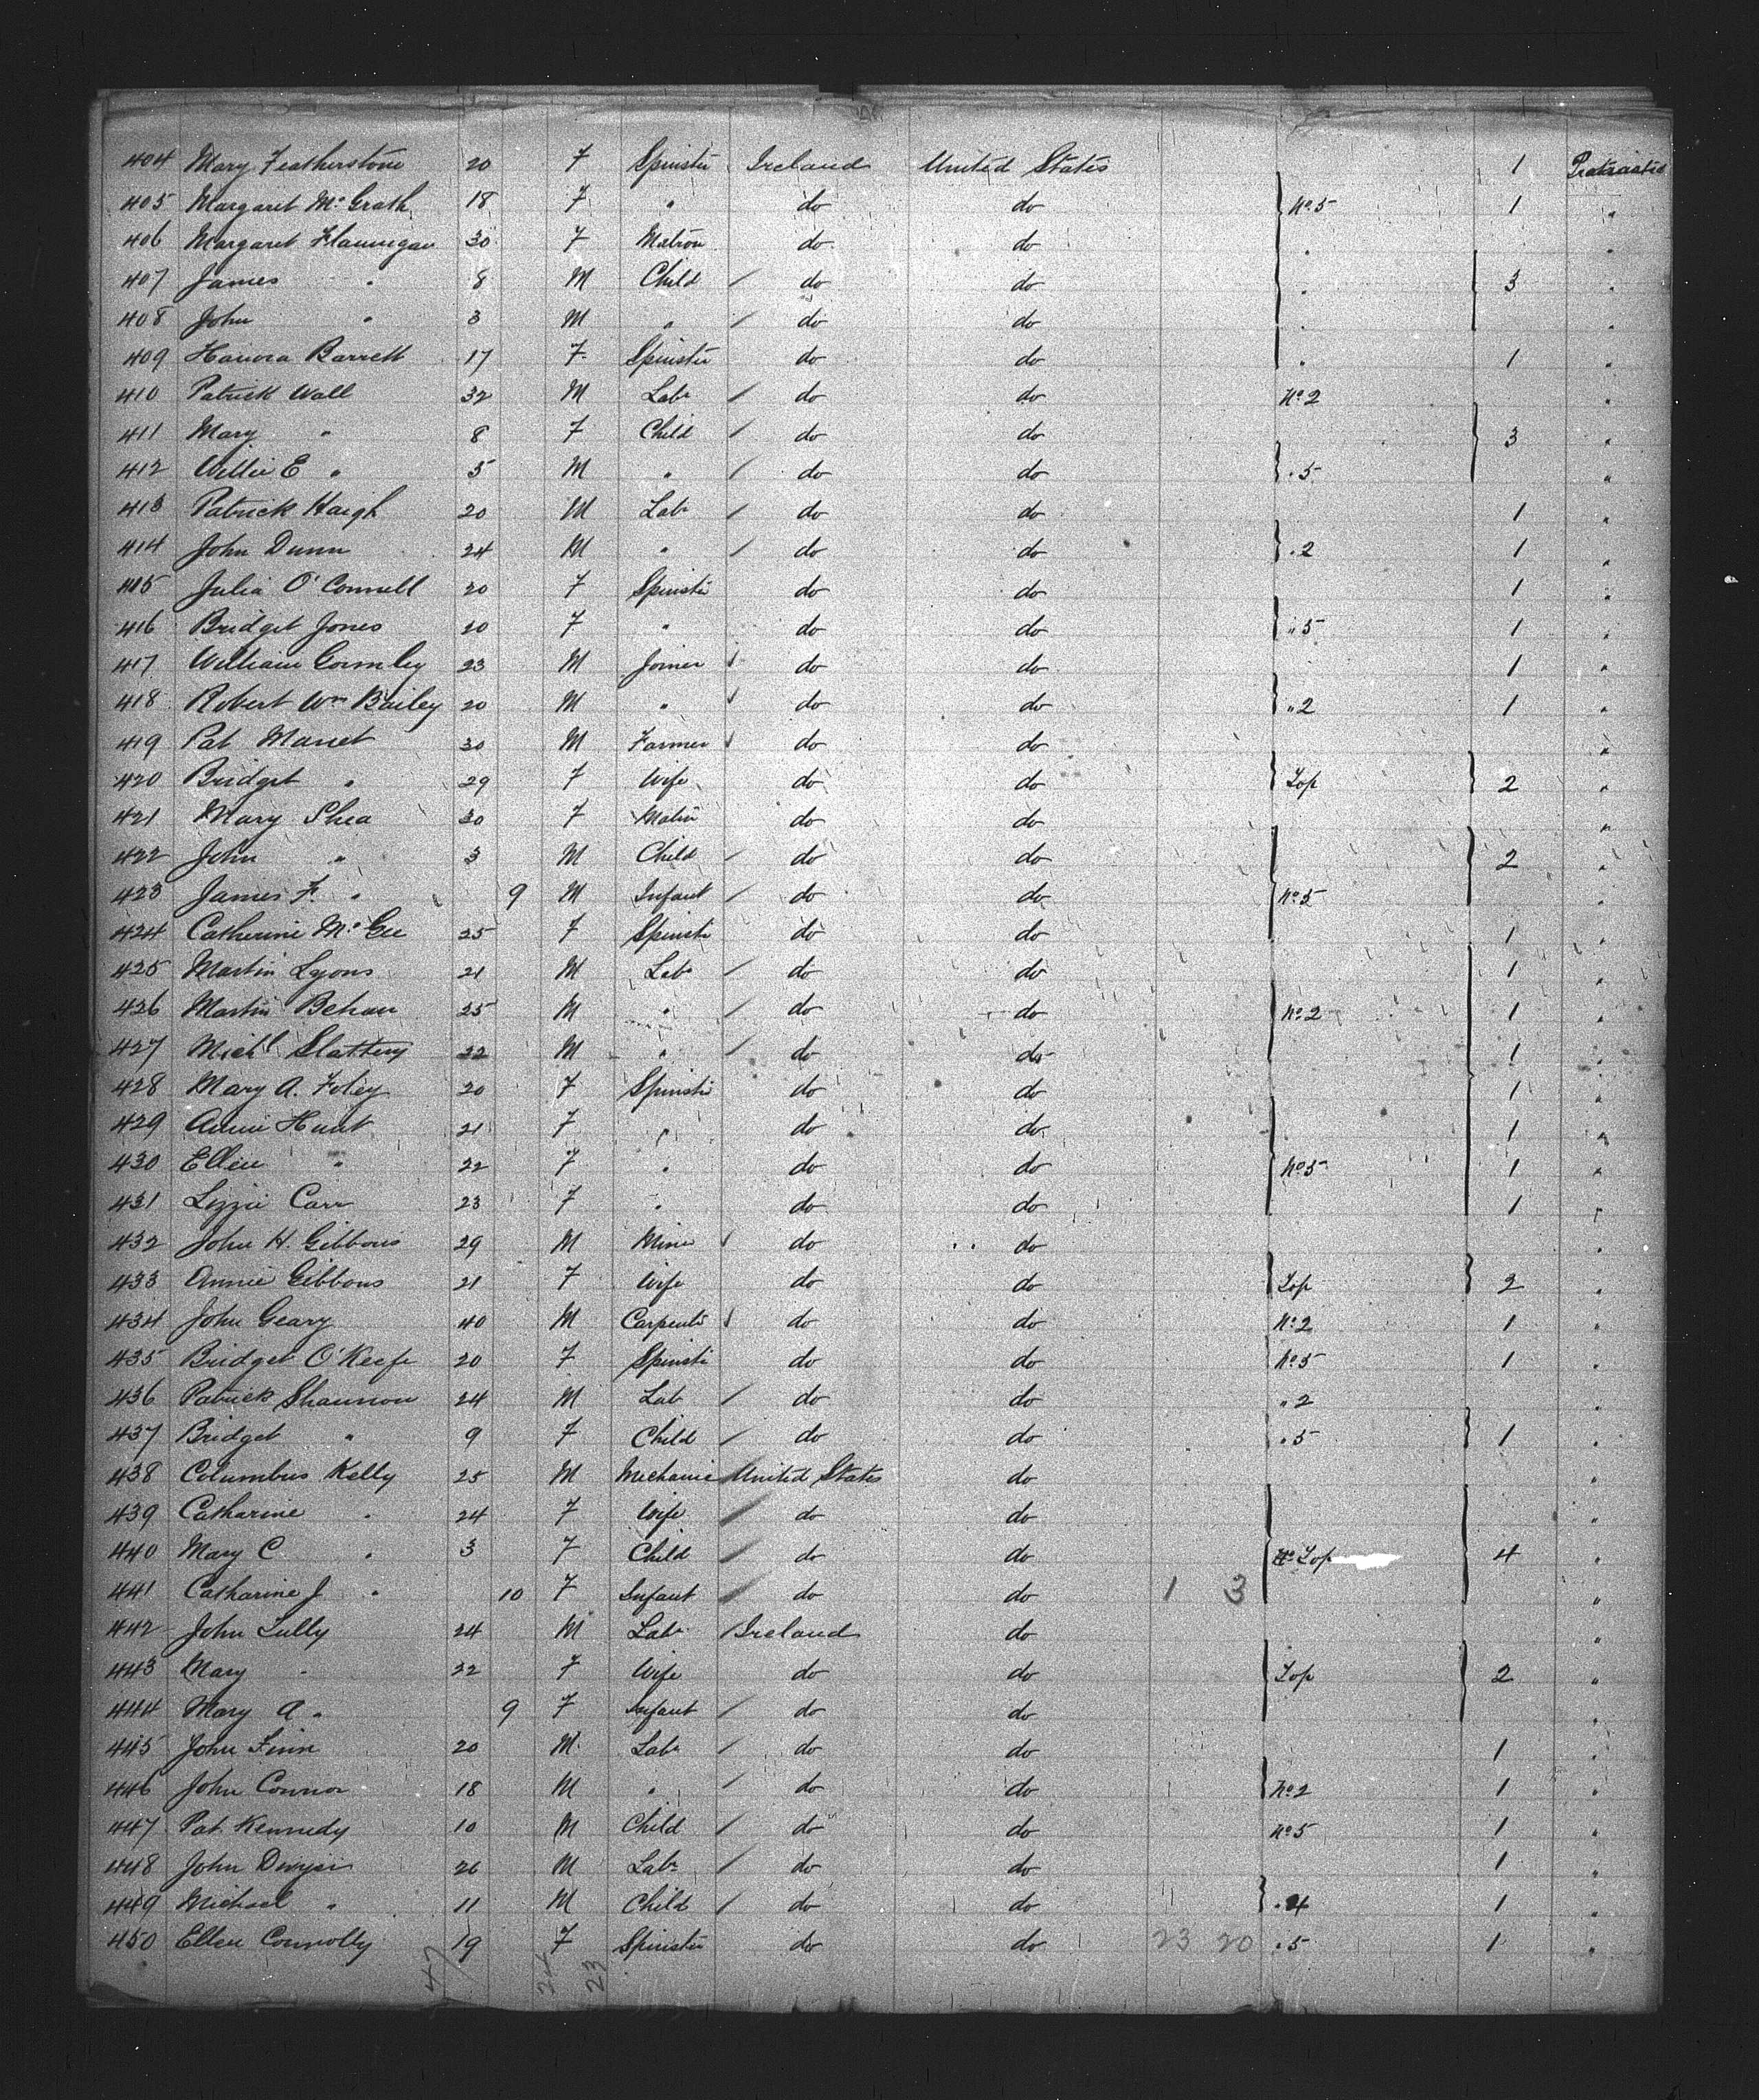 404 Mary Featherstone 20 F Spinster Ireland United States 1 Protracted
405 Margaret Mc Grath 18 F " do do No 5 1 "
406 Margaret Flannigan 30 F Matron do do " "
407 James " 8 M Child / do do " 3 "
408 John " 3 M " / do do " "
409 Hanora Barrett 17 F Spinster do do " 1 "
410 Patrick Wall 32 M Labr / do do No 2 "
411 Mary " 8 F Child / do do 3 "
412 Willie E " 5 M " / do do " 5 "
413 Patrick Haigh 20 M Labr / do do 1 "
414 John Dunn 24 M " / do do " 2 1 "
415 Julia O'Connell 20 F Spinster do do 1 "
416 Bridget Jones 20 F " do do " 5 1 "
417 William Gormley 23 M Joiner / do do 1 "
418 Robert Wm Bailey 20 M " / do do " 2 1 "
419 Pat 30 M Farmer / do do "
420 Bridget " 29 F Wife do do Top 2 "
421 Mary Shea 30 F Matrn do do "
422 John " 3 M Child / do do 2 "
423 James F. " 9 M Infant / do do No 5 "
424 Catherine Mc Gee 25 F Spinstr do do 1 "
425 Martin Lyons 21 M Labr / do do 1 "
426 Martin Behan 25 M " / do do No 2 1 "
427 Michl Slattery 22 M " / do do 1 "
428 Mary A. Foley 20 F Spinstr do do 1 "
429 Annie Hunt 21 F " do do 1 "
430 Ellen " 22 F " do do No 5 1 "
431 Lizzie Carr 23 F " do do 1 "
432 John H. Gibbons 29 M Miner / do do "
433 Annie Gibbons 21 F Wife do do Top 2 "
434 John Geary 40 M Carpentr / do do No 2 1 "
435 Bridget O'Keefe 20 F Spinstr do do No 5 1 "
436 Patrick Shannon 24 M Lab / do do " 2 "
437 Bridget " 9 F Child / do do " 5 1 "
438 Columbus Kelly 25 M Mechanic / United States do "
439 Catharine " 24 F Wife / do do "
440 Mary C " 3 F Child / do do Top 4 "
441 Catharine J " 10 F Infant / do do 1 3 "
442 John Tully 24 M Labr / Ireland do "
443 Mary " 22 F Wife do do Top 2 "
444 Mary A " 9 F Infant / do do "
445 John Finn 20 M Labr / do do 1 "
446 John Connor 18 M " / do do No 2 1 "
447 Pat Kennedy 10 M Child / do do No 5 1 "
448 John Dwyer 26 M Labr / do do 1 "
449 Michael " 11 M Child / do do " 4 1 "
450 Ellen Connolly 19 F Spinster do do 23 20 " 5 1 "
47 24 23